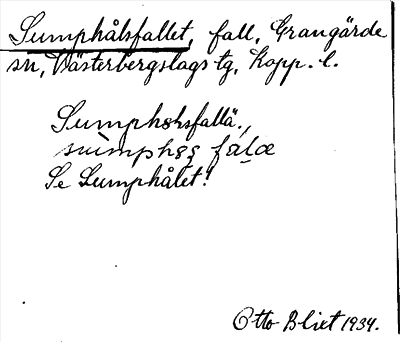 Sumphålsfallet, fall, Grangärde
sn, Västerbergslags tg, Kopp. l.
Sumphohsfallä.,
Se Sumphålet!
Otto Blixt 1934.